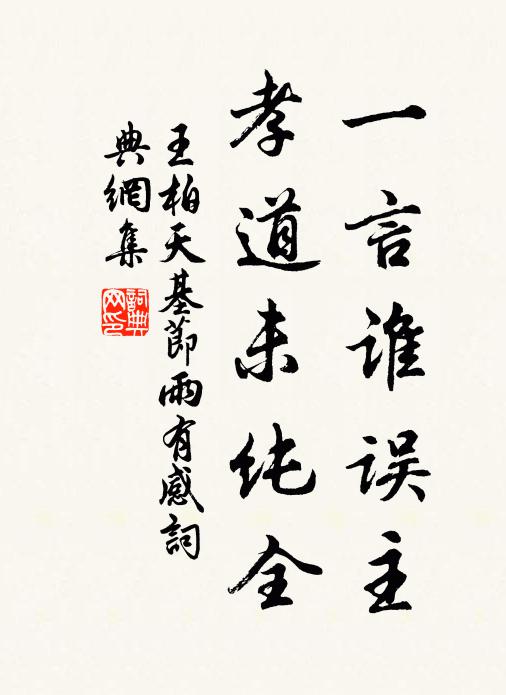 一言谁误主
孝道未纯全
王柏天基節雨有感詞
典網集
詞典网印